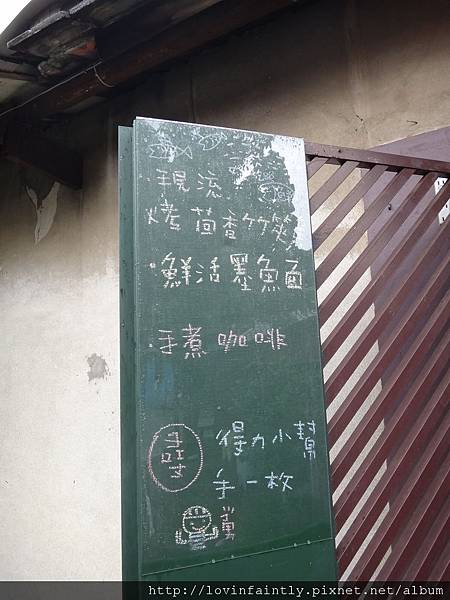 ·現流
烤茴香竹筴
·鮮活墨魚面
·手煮咖啡
誠
得力小幫
手一枚
http://lovinfaintly.pixnet.net/album